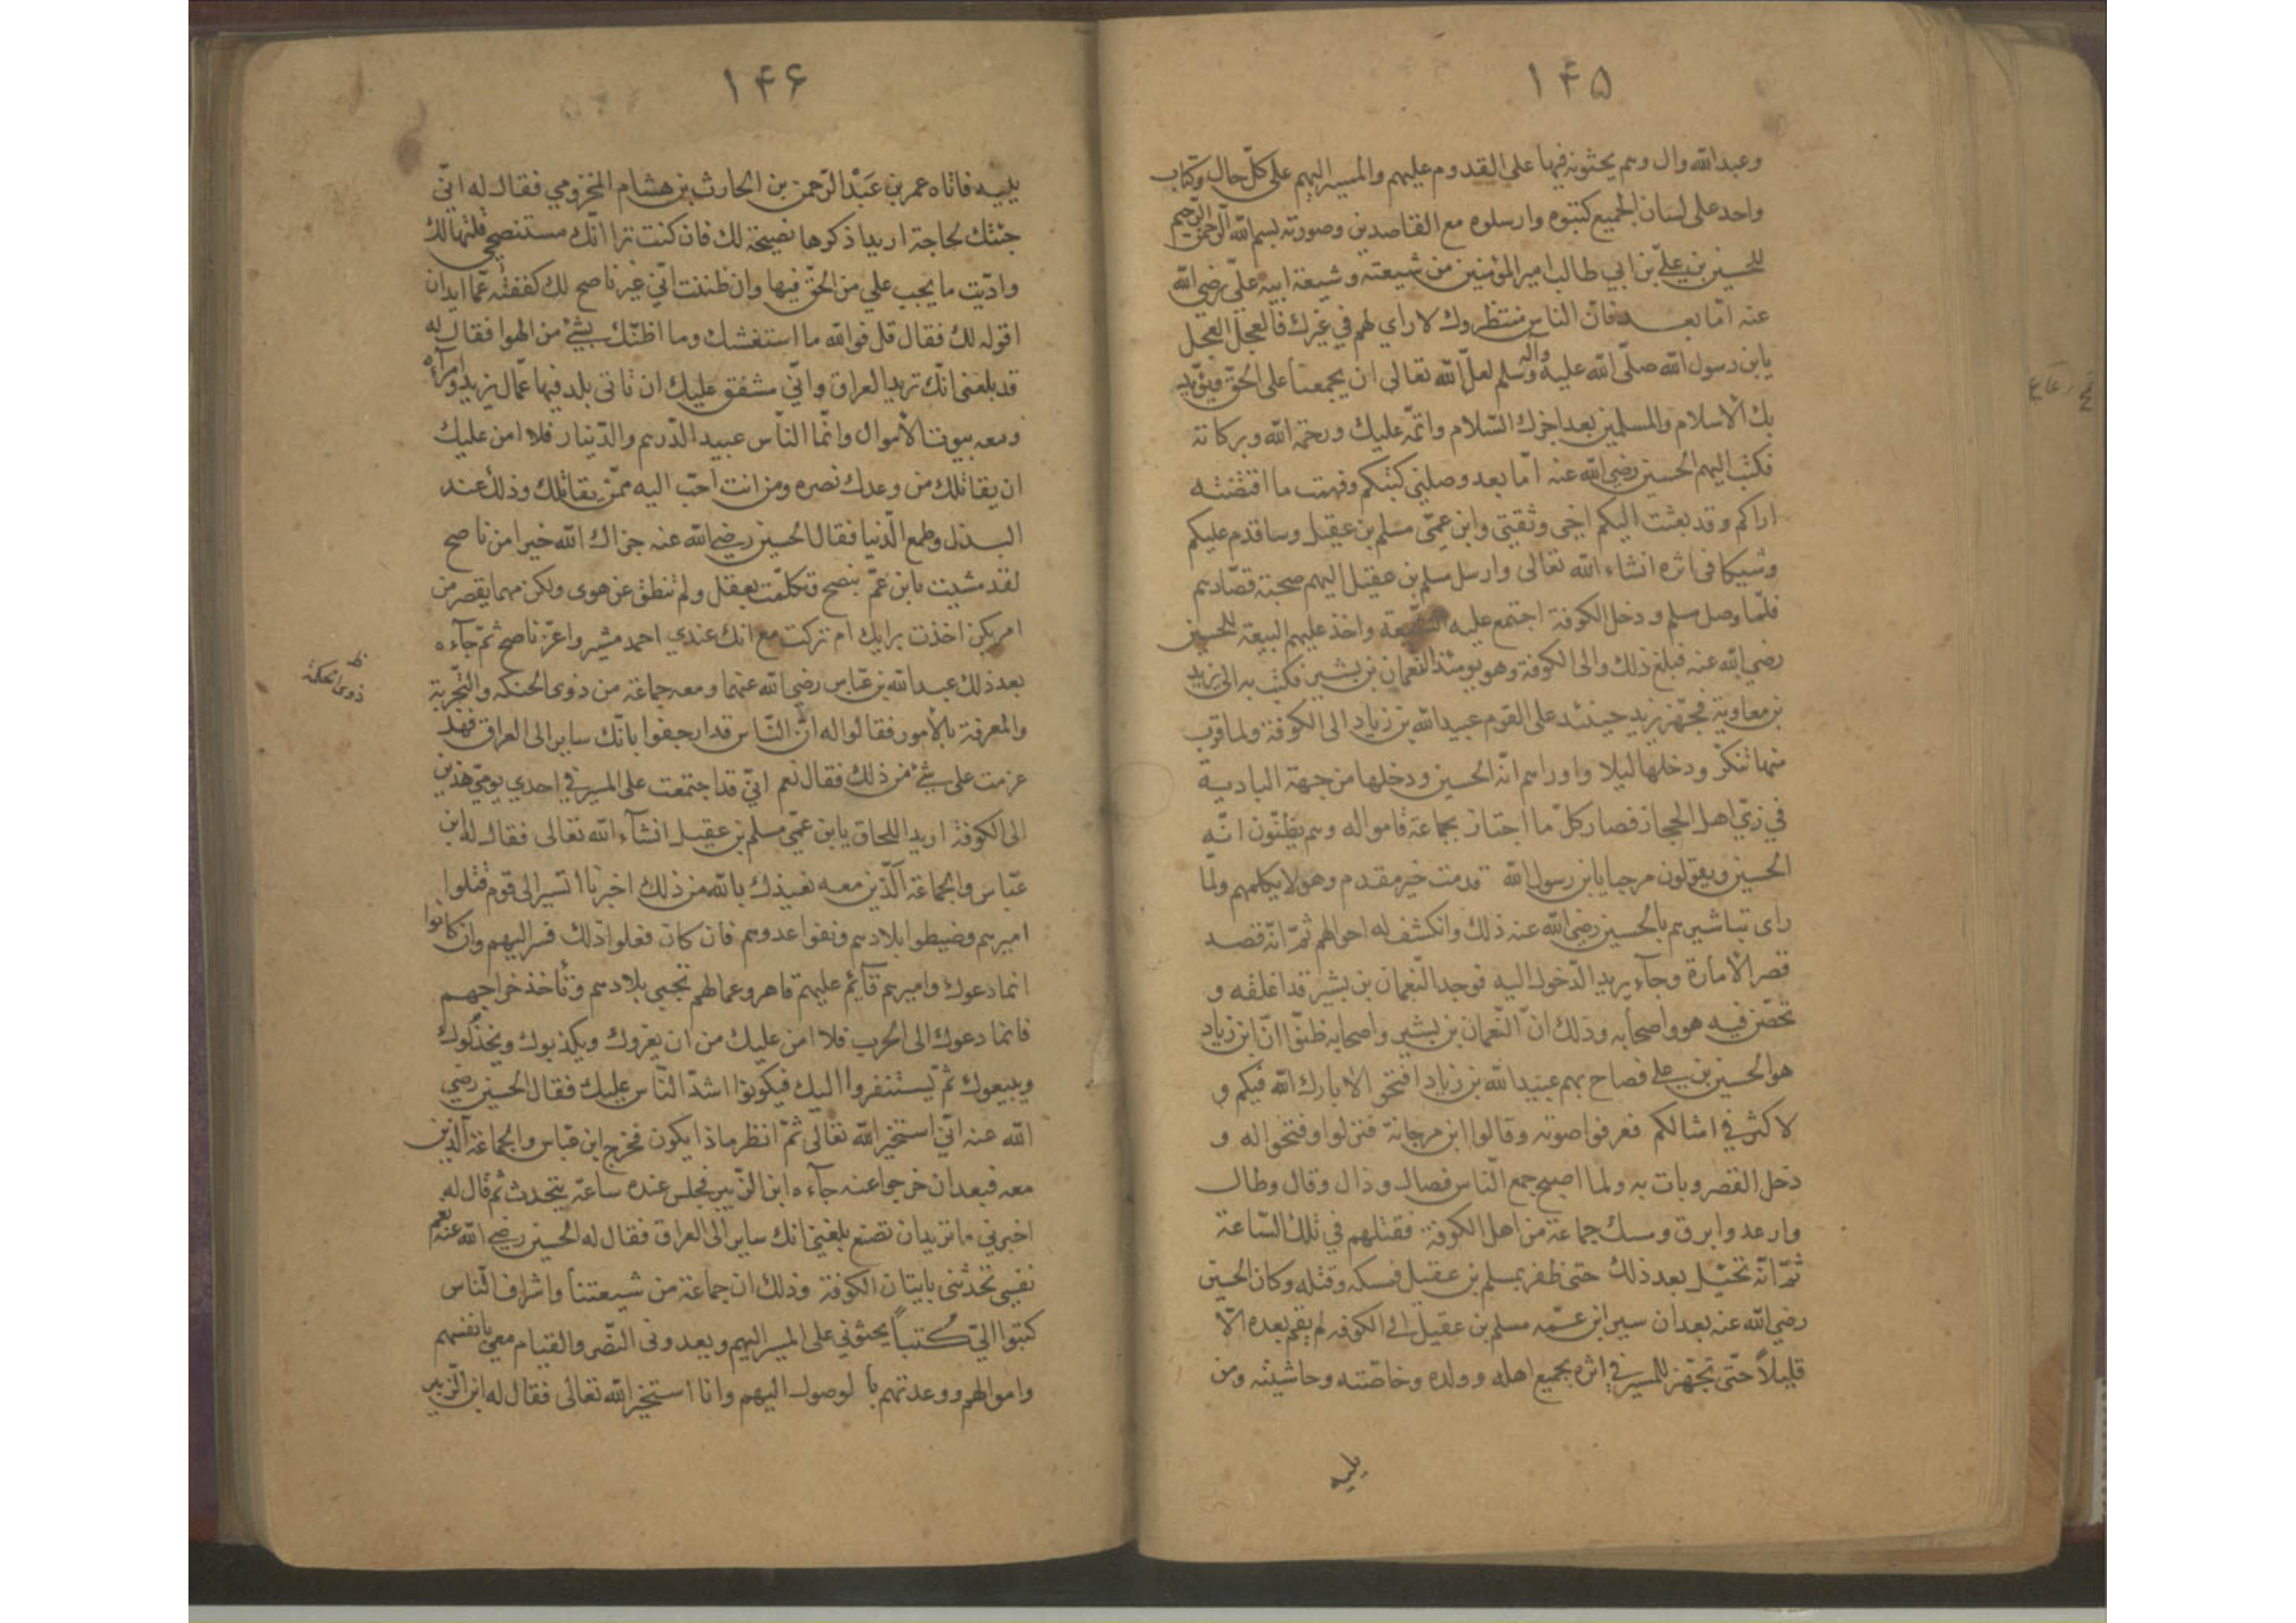 ۱۴۵
وعبدالله وال وهم يحثونه فيها على القدوم عليهم والمسير اليهم على كلّ حال وكتاب
واحد على لسان الجميع كتبوه وارسلوه مع القاصدين وصورته بسم الله الرّحمن الرّحيم
للحسين بن علي بن ابي طالب امير المؤمنين من شيعته وشيعة ابيه عليّ رضي الله
عنه امّا بعد فانّ الناس منتظروك لا راي لهم في غيرك فالعجل العجل
يابن رسول الله صلّى الله عليه وآله وسلم لعلّ الله تعالى ان يجمعنا على الحقّ ويؤيد
بك الاسلام والمسلمين بعد اجزل السّلام واتمّه عليك ورحمة الله وبركاته
فكتب اليهم الحسين رضي الله عنه امّا بعد وصلني كتبكم وفهمت ما اقتضته
اراكم وقد بعثت اليكم اخي وثقتي وابن عمّي مسلم بن عقيل وساقدم عليكم
وشيكا في اثره انشاء الله تعالى وارسل مسلم بن عقيل اليهم صحبة قصّادهم
فلمّا وصل مسلم ودخل الكوفة اجتمع عليه الشّيعة واخذ عليهم البيعة للحسين
رضي الله عنه فبلغ ذلك والى الكوفة وهو يومئذ النعمان بن بشير فكتب به الى يزيد
بن معاوية فجهّز يزيد حينئذ على القوم عبيد الله بن زياد الى الكوفة ولما قرب
منها تنكّر ودخلها ليلا واوراهم انّه الحسين ودخلها من جهة البادية
في زيّ اهل الحجاز فصار كلّ ما اجتاز بجماعة قاموا له وهم يظنّون انّه
الحسين ويقولون مرحبا يابن رسول الله قدمت خير مقدم وهو لا يكلمهم ولمّا
راى تباشيرهم بالحسين رضي الله عنه ذلك وانكشف له احوالهم ثمّ انّه قصد
قصر الامارة وجآء يريد الدّخول اليه فوجد النّعمان بن بشير قد اغلقه و
تحصّن فيه هو واصحابه وذلك انّ النّعمان بن بشير واصحابه ظنّوا انّ ابن زياد
هو الحسين بن علي فصاح بهم عبيد الله بن زياد افتحوا لا بارك الله فيكم و
لا كثر في امثالكم فعرفوا صوته وقالوا ابن مرجانة فنزلوا وفتحوا له و
دخل القصر وبات به ولما اصبح جمع النّاس فصال وذال وقال وطال
وارعد وابرق ومسك جماعة من اهل الكوفة فقتلهم في تلك السّاعة
ثمّ انّه تحيّل بعد ذلك حتى ظفر بمسلم بن عقيل فمسكه وقتله وكان الحسين
رضي الله عنه بعد ان سير ابن عمّه مسلم بن عقيل الى الكوفه لم يقم بعده الّا
قليلاً حتّى تجهّز للمسير في اثره بجميع اهله وولده وخاصّته وحاشيته ومن
يليه
۱۴۶
يليه فاتاه عمر بن عَبْد الرّحمن بن الحارث بن هشام المخزومي فقال له انّي
جئتك لحاجة اريد اذكرها نصيحة لك فان كنت ترا انّك مستنصحي قلتها لك
وادّيت ما يجب علي من الحقّ فيها وان ظننت انّي غير ناصح لك كففته عمّا اريد ان
اقوله لك فقال قل فوالله ما استغشك وما اظنّك بشئ من الهوا فقال له
قد بلغنى انّك تريد العراق وانّي مشفق عليك ان تاتى بلد فيها عمّال يزيد وامرآءه
ومعه بيوت الأموال وانّما النّاس عبيد الدّرهم والدّينار فلا امن عليك
ان يقاتلك من وعدك نصره ومن انت احبّ اليه ممّن يقاتلك وذلك عند
البذل وطمع الدّنيا فقال الحسين رضي الله عنه جزاك الله خيرا من ناصح
لقد مشيت يابن عمّ بنصح وتكلّمت بعقل ولم تنطق عن هوى ولكن مهما يقصر من
امر يكن اخذت برايك ام تركت مع انك عندي احمد مشير واعزّ ناصح ثمّ جآءه
بعد ذلك عبد الله بن عبّاس رضي الله عنهما ومعه جماعة من ذوى الحنكه والتّجربة
ظ ذوى الحكمة
والمعرفة بالأمور فقالوا له انّ النّاس قد ارجفوا بانّك ساير الى العراق فهل
عزمت على شئ من ذلك فقال نعم انّي قد اجتمعت على المسير في احدي يوميّ هذين
الى الكوفة اريد اللحاق يابن عمّي مسلم بن عقيل انشآء الله تعالى فقال له ابن
عبّاس والجماعة الّذين معه نعيذك بالله من ذلك اخبرنا أتسير الى قوم قتلوا
اميرهم وضبطوا بلادهم ونفوا عدوهم فان كان فعلوا ذلك فسر اليهم وان كانوا
انما دعوك واميرهم قآئم عليهم قاهر وعمالهم تجبى بلادهم وتأخذ خراجهم
فانما دعوك الى الحرب فلا امن عليك من ان يغروك ويكذبوك ويخذلوك
ويبيعوك ثمّ يستنفروا اليك فيكونوا اشدّ النّاس عليك فقال الحسين رضي
الله عنه انّي استخير الله تعالى ثمّ انظر ماذا يكون فخرج ابن عبّاس والجماعة الّذين
معه فبعد ان خرجوا عنه جآءه ابن الزّبير فجلس عنده ساعة يتحدث ثم قال له
اخبرني ما تريد ان تصنع بلغني انك ساير الى العراق فقال له الحسين رضي الله عنه نعم
نفسي تحدثني باتيان الكوفة وذلك ان جماعة من شيعتنا واشراف النّاس
كتبوا اليّ كُتباً يحثوني على المسير اليهم ويعدونى النّصر والقيام معي بانفسهم
واموالهم ووعدتهم بالوصول اليهم وانا استخير الله تعالى فقال له ابن الزّبير